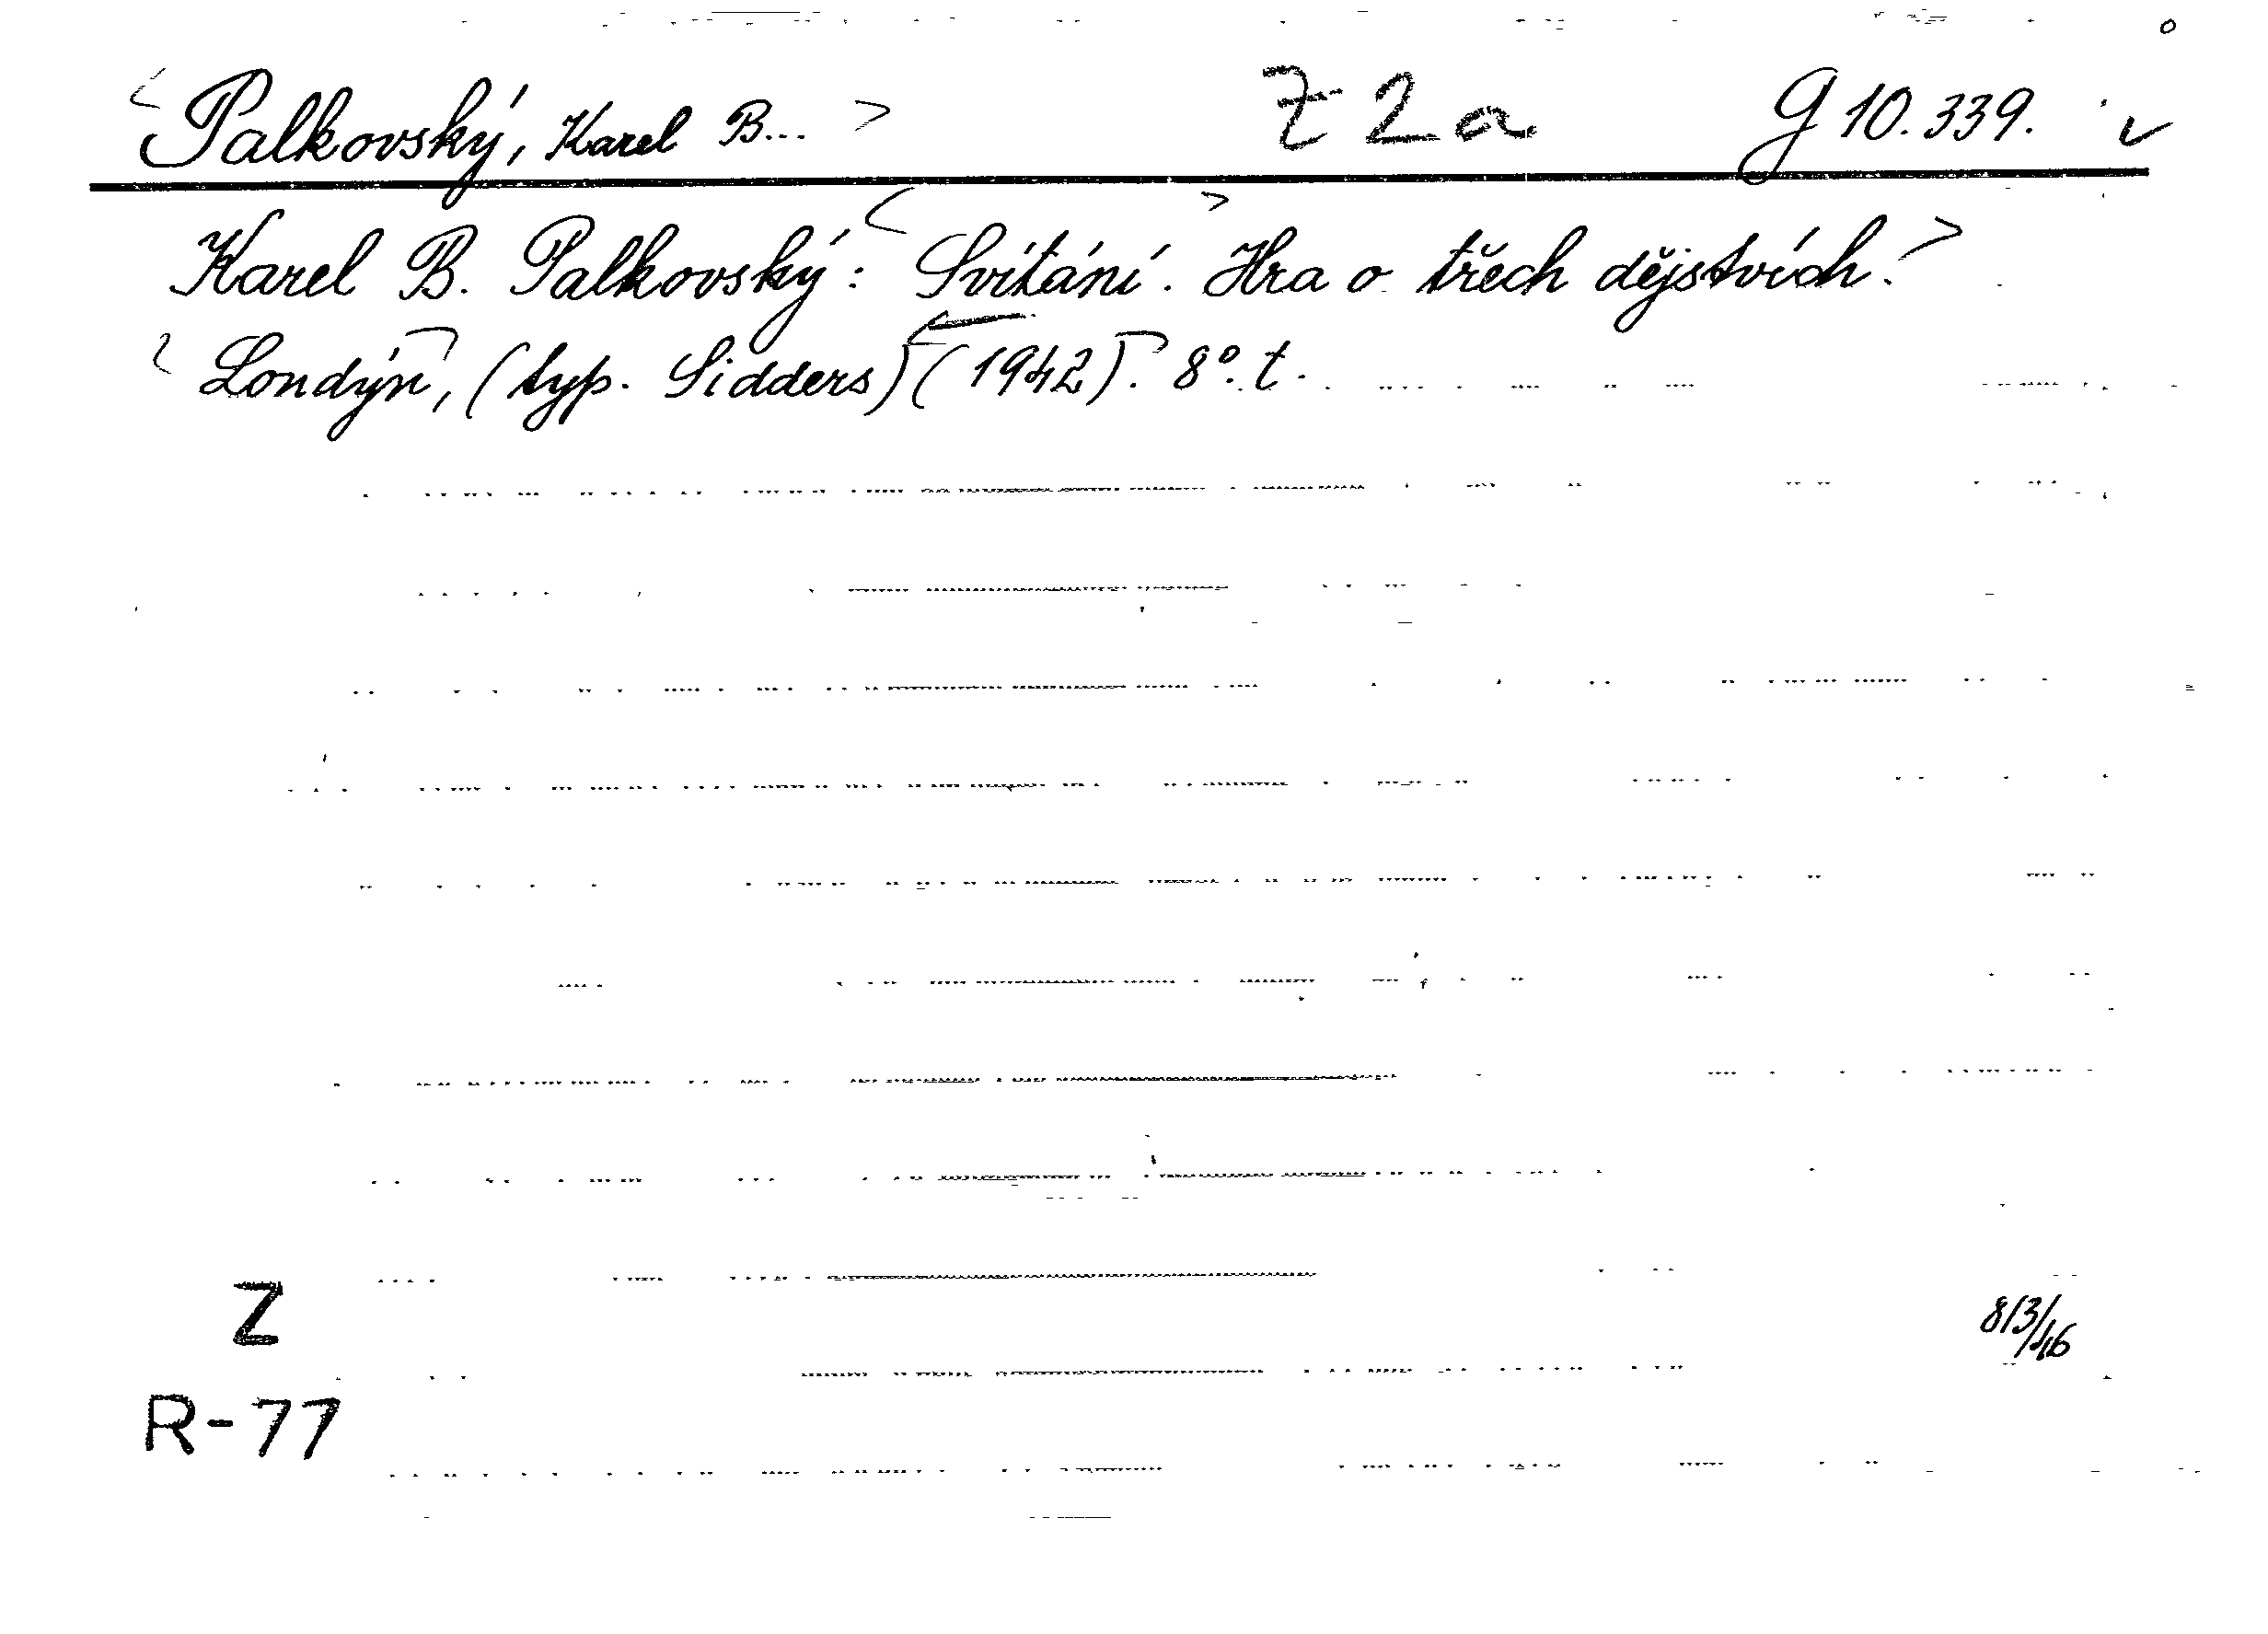 Palkovský, Karel B... Z 2a G 10.339.
Karel B. Palkovský: Svítání. Hra o třech dějstvích.
Londýn, (typ. Sidders) (1942). 8°. t.
Z
8/3/46
R-77